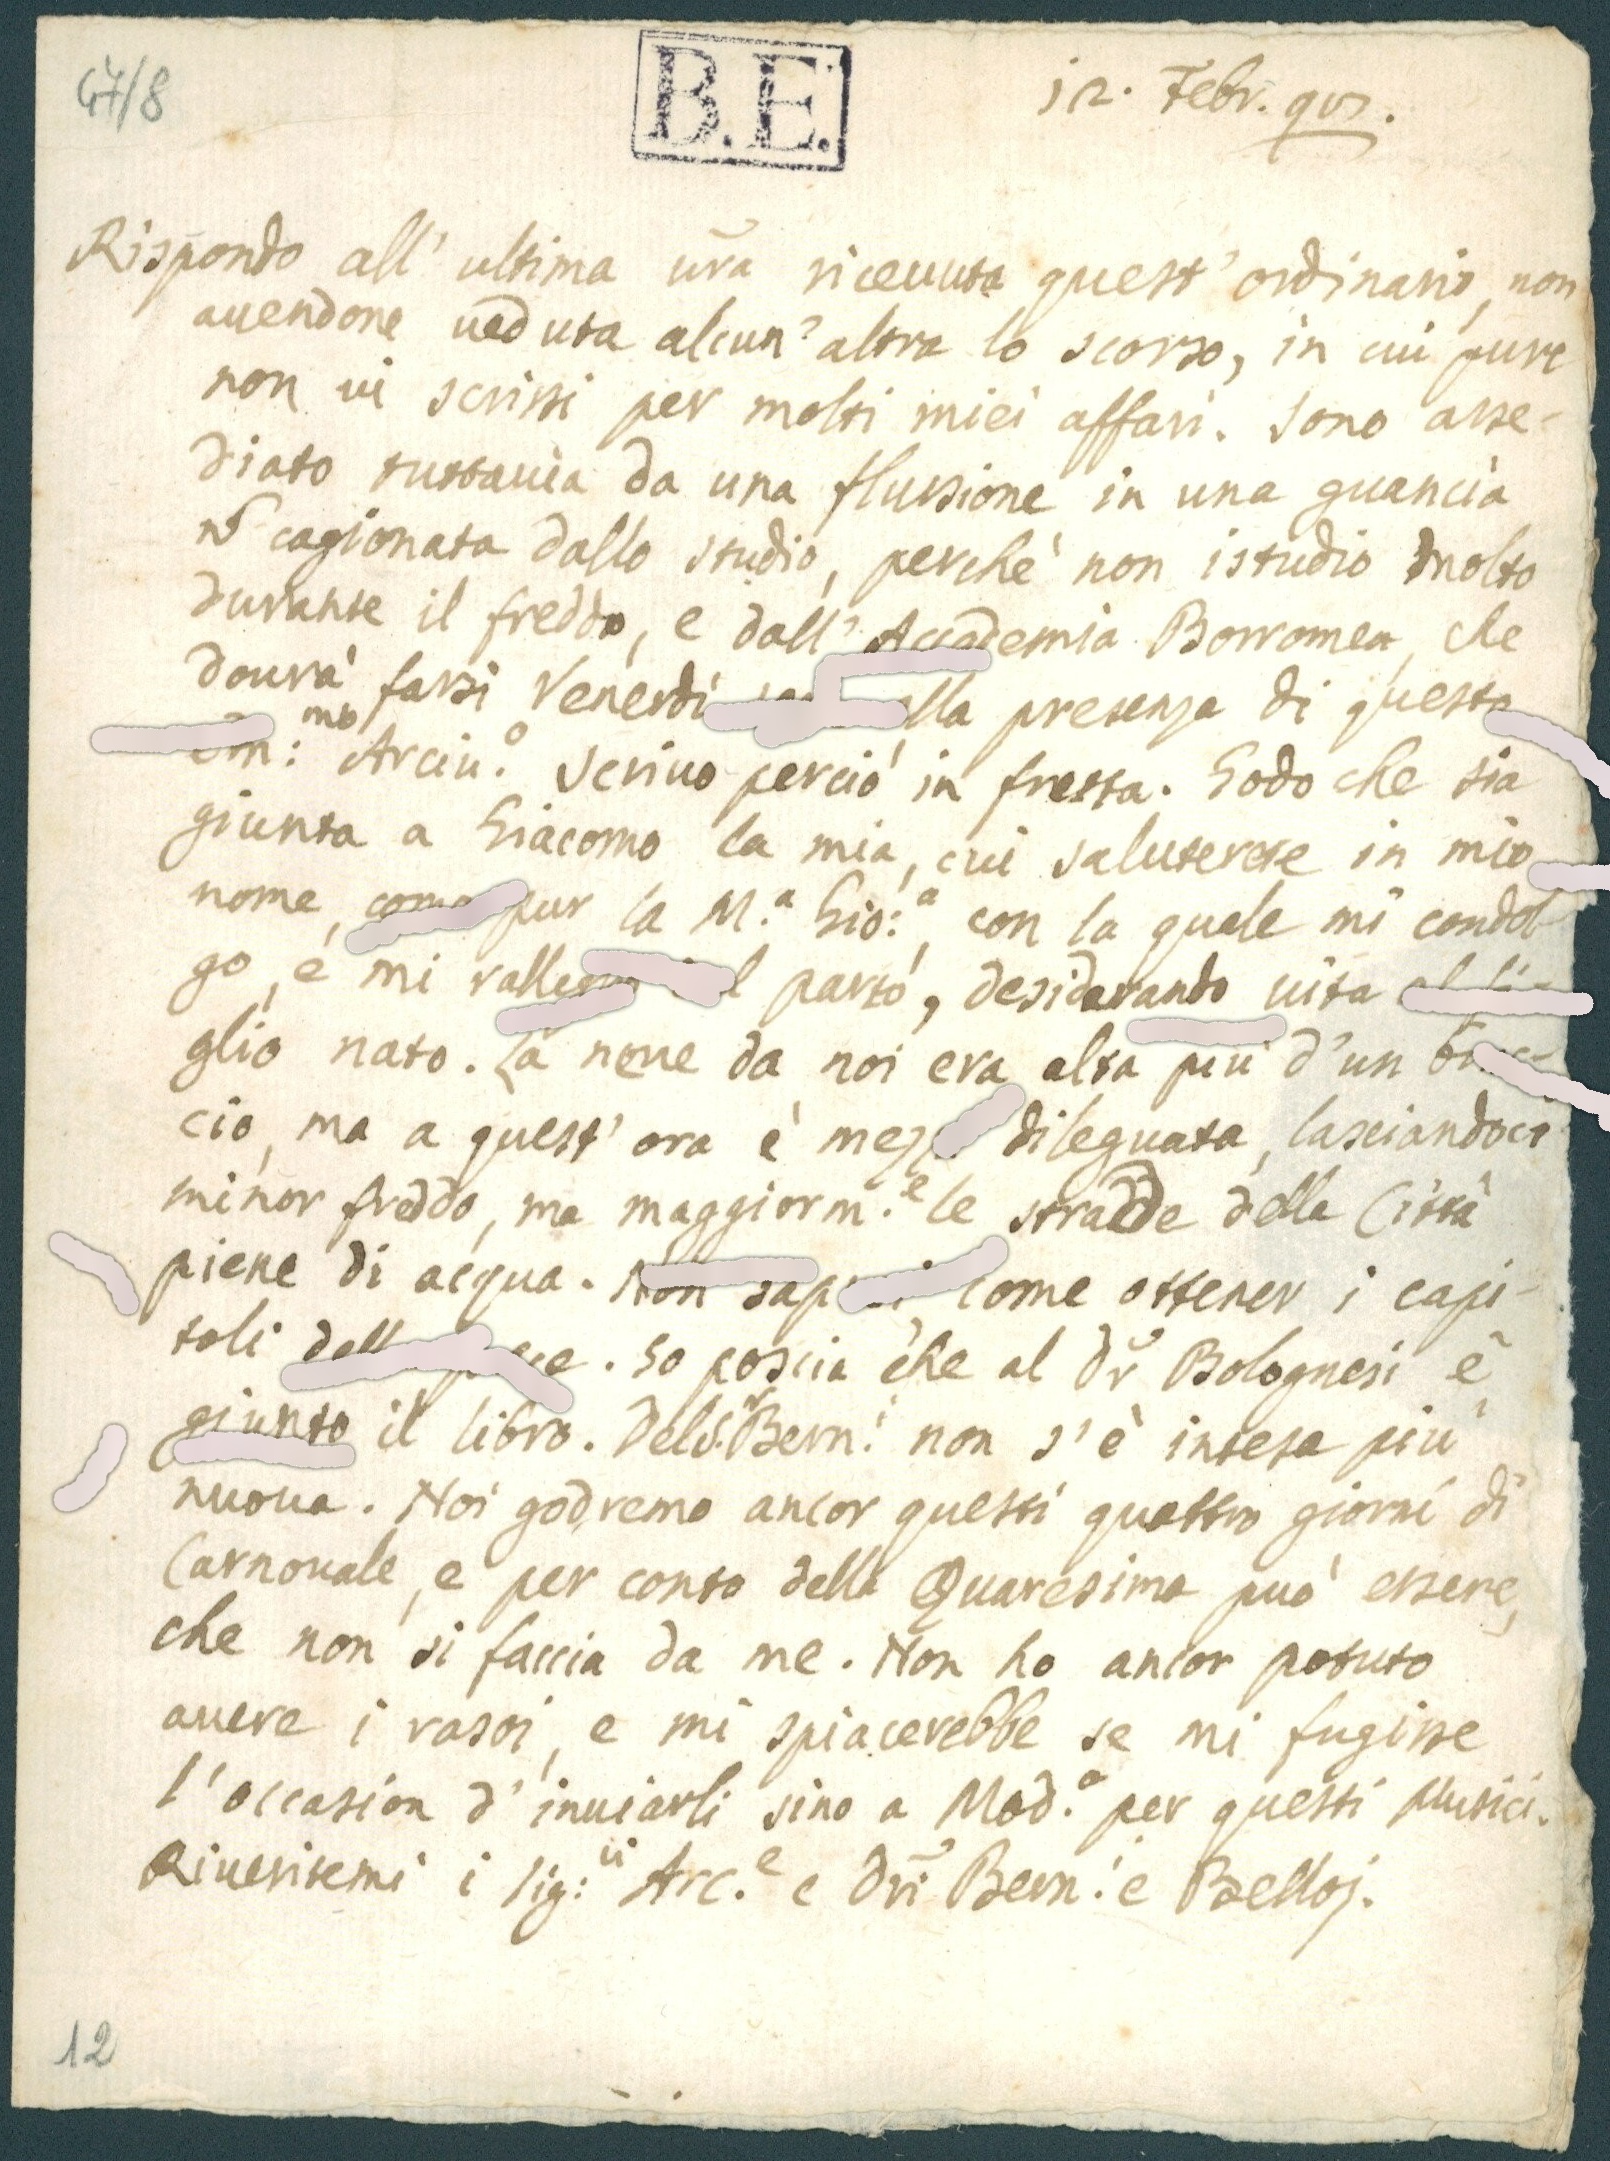 47/8
B.E.
12. Febr. 99.
Rispondo all' ultima vr̃a riceuuta quest' ordinario, non
auendone ueduta alcun' altra lo scorso, in cui pure
non ui scrissi per molti miei affari. Sono asse-
diato tuttauia da una flussione in una guancia
nõ cagionata dallo studio, perchè non istudio molto
durante il freddo, e dall' Accademia Borromea, che
dourà farsi Venerdì alla presenza di questo
Em:mo Arciu.o Scriuo perciò in fretta. Godo che sia
giunta a Giacomo la mia, cui saluterete in mio
nome, come pur la M.a Gio:a, con la quale mi condol-
go, e mi rallegro parto, desiderando uita al fi-
glio nato. La neue da noi era alta più d'un brac-
cio, ma a quest' ora è mezza dileguata, lasciandoci
minor freddo, ma maggiorm.e le stradde della Città
piene di acqua. Non saprei come ottener i capi-
toli della pace. So poscia che al Dr̃ Bolognesi è
giunto il libro. Del S.r Bern.i non s'è intesa più
nuoua. Noi godremo ancor questi quattro giorni di
Carnouale, e per conto della Quaresima può essere,
che non si faccia da me. Non ho ancor potuto
auere i rasoi, e mi spiacerebbe se mi fugisse
l'occasion d'inuiarli sino a Mod.a per questi Musici.
Riueritemi i Sig:ri Arc.e e Dri Bern.i e Belloj.
12